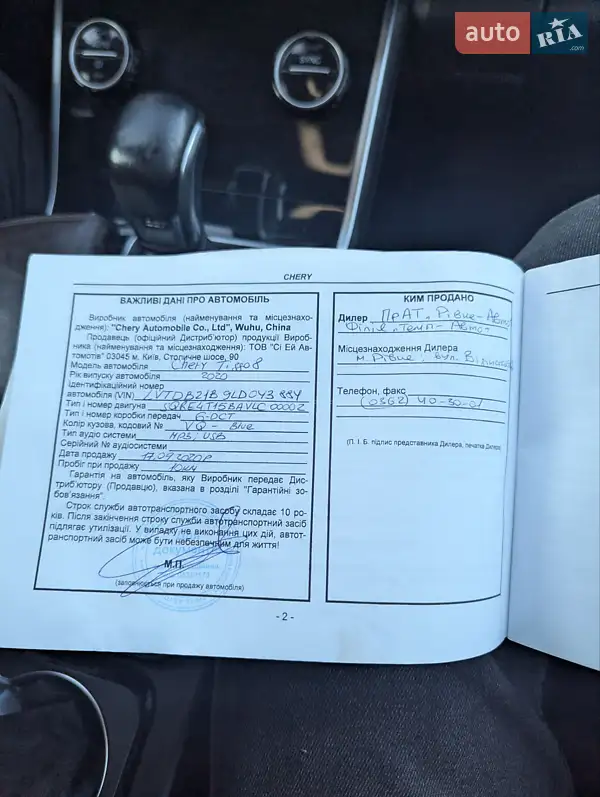 auto RIA .com
SYNC
CHERY
ВАЖЛИВІ ДАНІ ПРО АВТОМОБІЛЬ
Виробник автомобіля (найменування та місцезнахо-
дження): "Chery Automobile Co., Ltd", Wuhu, China
Продавець (офіційний Дистриб'ютор) продукції Вироб-
ника (найменування та місцезнаходження): ТОВ "Сі Ей Ав-
томотів" 03045 м. Київ, Столичне шосе, 90
Модель автомобіля Chery Tiggo 8
Рік випуску автомобіля 2020
Ідентифікаційний номер
автомобіля (VIN)
Тип і номер двигуна SQRE4T15BAVLC00002
Тип і номер коробки передач 6-DCT
Колір кузова, кодовий № VQ - Blue
Тип аудіо системи MP3/USB
Серійний № аудіосистеми
Дата продажу 17.09.2020р
Пробіг при продажу 10км
Гарантія на автомобіль, яку Виробник передає Дис-
триб'ютору (Продавцю), вказана в розділі "Гарантійні зо-
бов'язання".
Строк служби автотранспортного засобу складає 10 ро-
ків. Після закінчення строку служби автотранспортний засіб
підлягає утилізації. У випадку не виконання цих дій, автот-
ранспортний засіб може бути небезпечним для життя!
М.П.
(заповнюється при продажу автомобіля)
КИМ ПРОДАНО
Дилер ПрАТ "Рівне-Авто"
Філія "Темп-Авто"
Місцезнаходження Дилера
м. Рівне, вул.
Телефон, факс
(0362) 40-30-01
(П. І. Б. підпис представника Дилера, печатка Дилера)
- 2 -